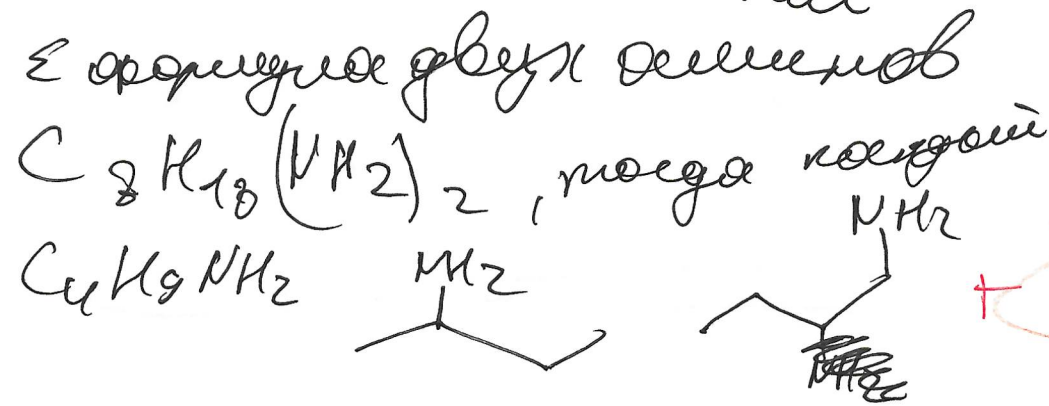 Σ формула двух аминов
C₈H₁₈(NH₂)₂, тогда каждый
C₄H₉NH₂ NH₂ NH₂
+